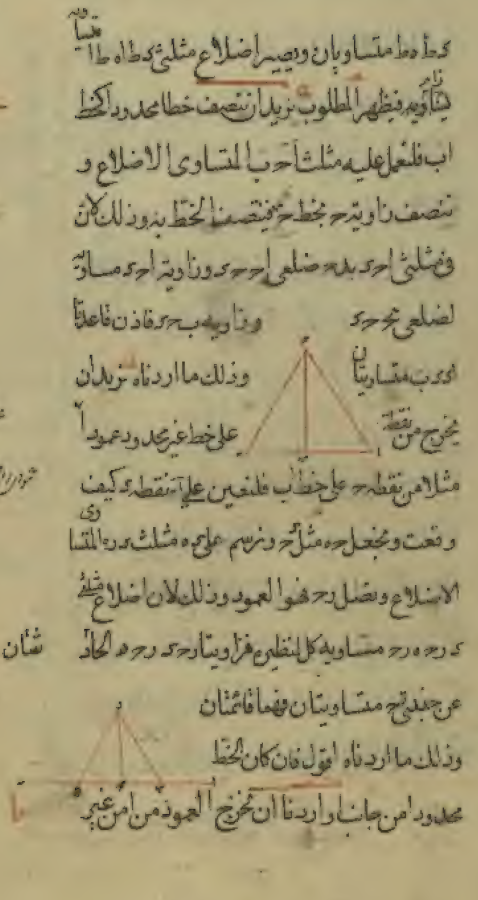 متساويان ويصير اضلاع مثلثى
فيظهر المطلوب نريد ان ننصف خطا محدودا كخط
اب فلنعمل عليه مثلث ا ح ب المتساوى الاضلاع و
ننصف زاوية ح بخط ح د فينتصف الخط به وذلك لان
فى مثلثى ا ح د ب د ح ضلعى ا ح ح د وزاوية ا ح د مساوية
لضلعى ب ح ح د وزاوية ب ح د فاذن قاعدتا
ا د د ب متساويتان وذلك ما اردناه نريد ان
نخرج من نقطة على خط غير محدود عمودا
مثلا من نقطة ح على خط اب فلنعين عليه نقطة د كيف
وقعت ونجعل ح ه مثل ح د ونرسم على د ه مثلث د ر ه المتساوى
الاضلاع ونصل ر ح فهو العمود وذلك لان اضلاع مثلثى
د ر ح ه ر ح متساوية كل لنظيره فزاويتا ر ح د ر ح ه الحادثتان
عن جنبتى ر ح متساويتان فهما قائمتان
وذلك ما اردناه اقول فان كان الخط
محدودا من جانب ا واردنا ان نخرج العمود من ا من غير